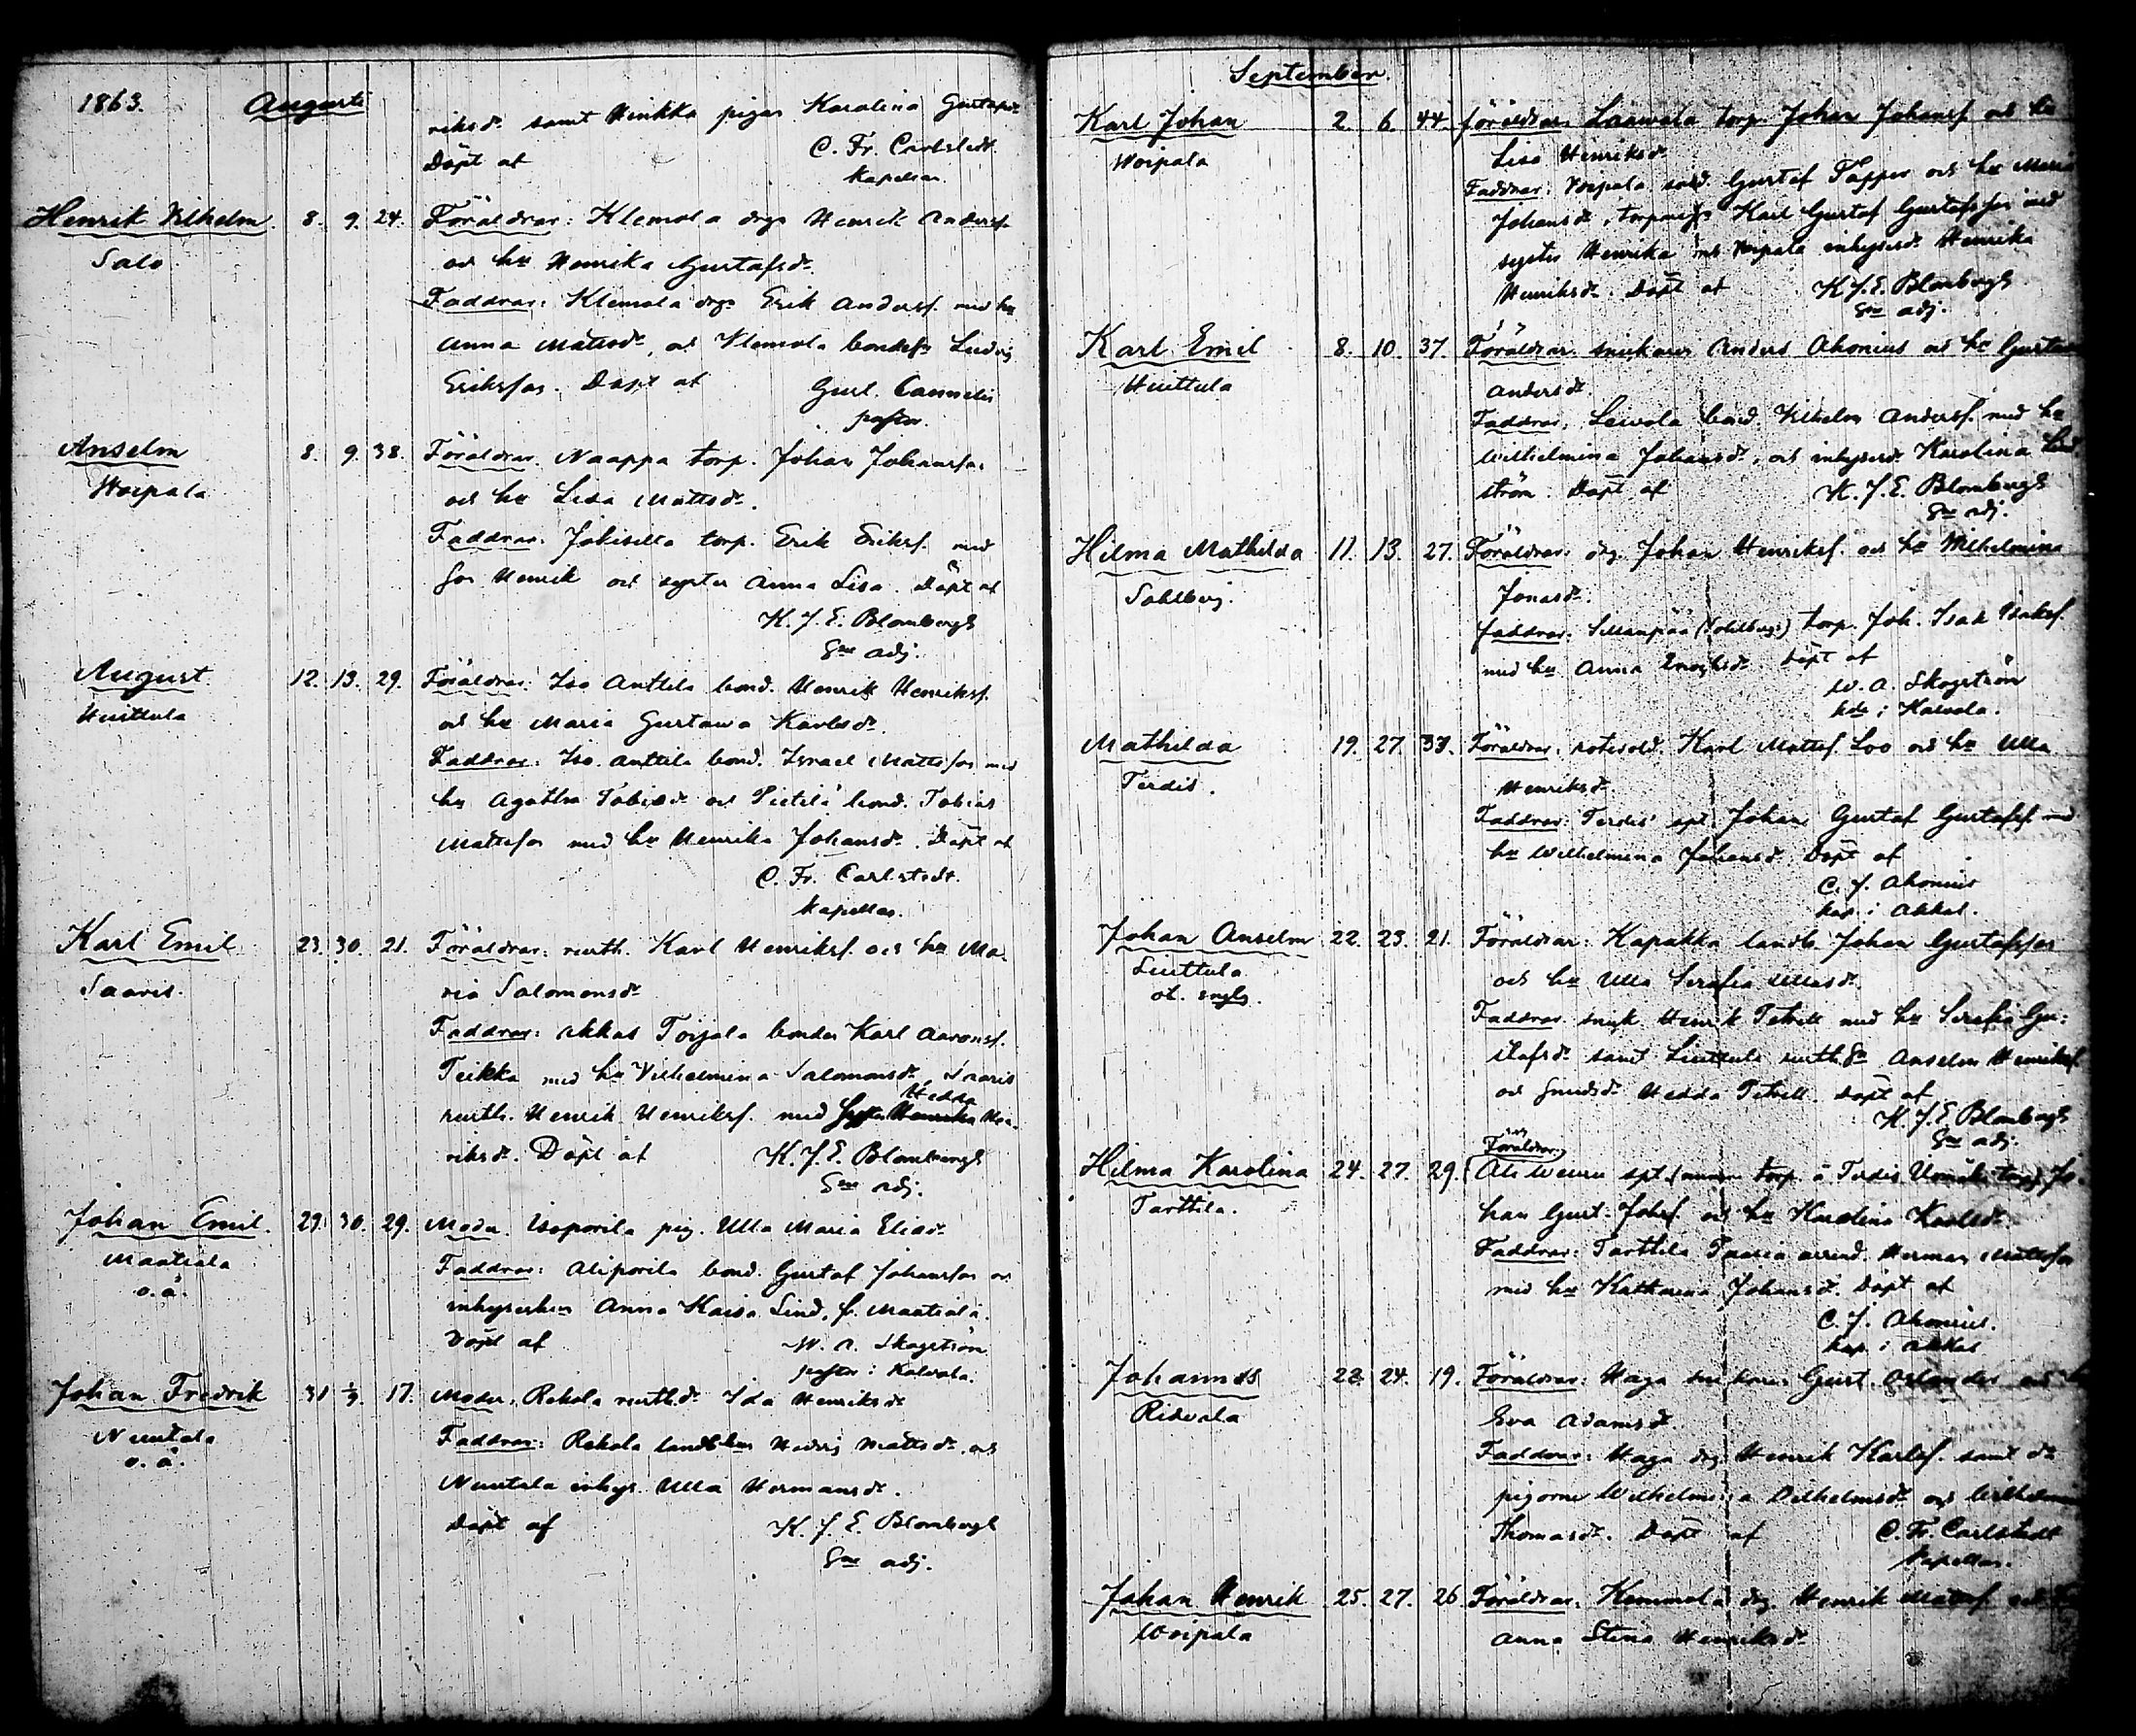 1863. Augusti
riksdr samt Uinkka pigan Karolina Gustafsdr
Döpt af C. Fr. Carlstedt.
Kapellan.
Henrik Vilhelm. 8. 9. 24. Föräldrar: Klemola drgn Henrik Andersf.
Salo och hu Henrika Gustafsdr
Faddrar: Klemola drgn Erik Andersf. med hu
Anna Mattsdr, och Klemola bondesn Ludvig
Eriksson. Döpt af Gust. Cannelin
pastor.
Anselm 8. 9. 38. Föräldrar. Naappa torp. Johan Johansson
Woipala och hu Lisa Mattsdr.
Faddrar. Jokisilla torp. Erik Eriksf. med
son Henrik och syster Anna Lisa. Döpt af
K. J. E. Blombergh
Sne adj.
August 12. 13. 29. Föräldrar. Iso Anttila bond. Henrik Henriksf.
Huittula och hu Maria Gustava Karlsdr.
Faddrar: Iso. Anttila bond. Israel Mattsson med
hu Agatha Tobiasdr och Pietilä bond. Tobias
Mattsson med hu Henrika Johansdr. Döpt af
C. Fr. Carlstedt.
Kapellan.
Karl Emil 23. 30. 21. Föräldrar: rusth. Karl Henriksf. och hu Ma-
Saaris. ria Salomonsdr
Faddrar: Akkas Torjala bonden Karl Aaronsf.
Teikka med hu Vilhelmina Salomonsdr, Saaris
Hedda
rusth. Henrik Henriksf. med Henrika Hen-
riksdr. Döpt af K. J. E. Blombergh
Sne adj.
Johan Emil. 29. 30. 29. Moder. Isoporila pig. Ulla Maria Eliasdr
Maatiala Faddrar: Aliporila bond. Gustaf Johansson och
o. ä. inhyseshun Anna Kaisa Lind, fr. Maatiala.
Döpt af W. A. Skogström
pastor i Kalvola.
Johan Fredrik 31 1/9. 17. Moder. Rekola rusth.dr Ida Henriksdr
Nuutala Faddrar: Rekola landb.hu Hedvig Mattsdr, och
o. ä. Nuutala inhys. Ulla Hermansdr.
Döpt af K. J. E. Blombergh
Sne adj.
September.
Karl Johan 2. 6. 44. Föräldrar: Laawola torp. Johan Johansf. och hu
Woipala Lisa Henriksdr
Faddrar: Woipala sold. Gustaf Tapper och hu Maria
Johansdr, Karl Gustaf Gustafsson med
syster Henrika Woipala inhysesdr Henrika
Henriksdr. Döpt af K. J. E. Blombergh
Sne adj.
Karl Emil 8. 10. 37. Föräldrar. snickaren Anders Ahonius och hu Gustava
Huittula Andersdr.
Faddrar. Leivola bond. Vilhelm Andersf. med hu
Wilhelmina Johansdr, och inhysesdr Karolina Lind-
ström. Döpt af K. J. E. Blombergh
Sne adj.
Hilma Mathilda 11. 13. 27. Föräldrar: drg. Johan Henriksf. och hu Wilhelmina
Sohlberg. Jonasdr.
Faddrar: Sillanpää (Sohlbergs) torp. Joh. Isak Isaksf.
med hu Anna Enochsdr. Döpt af
W. A. Skogström
khde i Kalvola.
Mathilda 19. 27. 33. Föräldrar: rotesold. Karl Mattsf. Loo och hu Ulla
Terdis. Henriksdr.
Faddrar: Terdis spt. Johan Gustaf Gustafsf. med
hu Wilhelmina Johansdr. Döpt af
C. J. Ahonius
kap. i Akkas.
Johan Anselm 22. 23. 21. Föräldrar: Kapakka landb. Johan Gustafsson
Liuttula och hu Ulla Serafia Ullasdr.
Faddrar smeden Henrik Tetrell med hu Serafia Gu-
stafsdr samt Liuttula rusth.sn Anselm Henriksf.
och Hedda Tetrell. Döpt af
K. J. E. Blombergh
Sne adj.
Föräldrar
Hilma Karolina 24. 27. 29. spt. torp. å Terdis Jo-
Tarttila. han Gust. Johsf. och hu Karolina Karlsdr
Faddrar: Tarttila arrend. Herman Mattsson
med hu Katharina Johansdr. Döpt af
C. J. Ahonius.
kap. i Akkas
Johannes 22. 24. 19. Föräldrar: Haga Gust. och hu
Ridvala Eva Adamsdr.
Faddrar: Haga drg. Henrik Karlsf. samt
pigorna Wilhelmina Vilhelmsdr och Wilhelmina
Thomasdr. Döpt af C. Fr. Carlstedt
Kapellan.
Johan Henrik 25. 27. 26 Föräldrar: Kemmola drg. Henrik Mattsf. och hu
Woipala Anna Stina Henriksdr